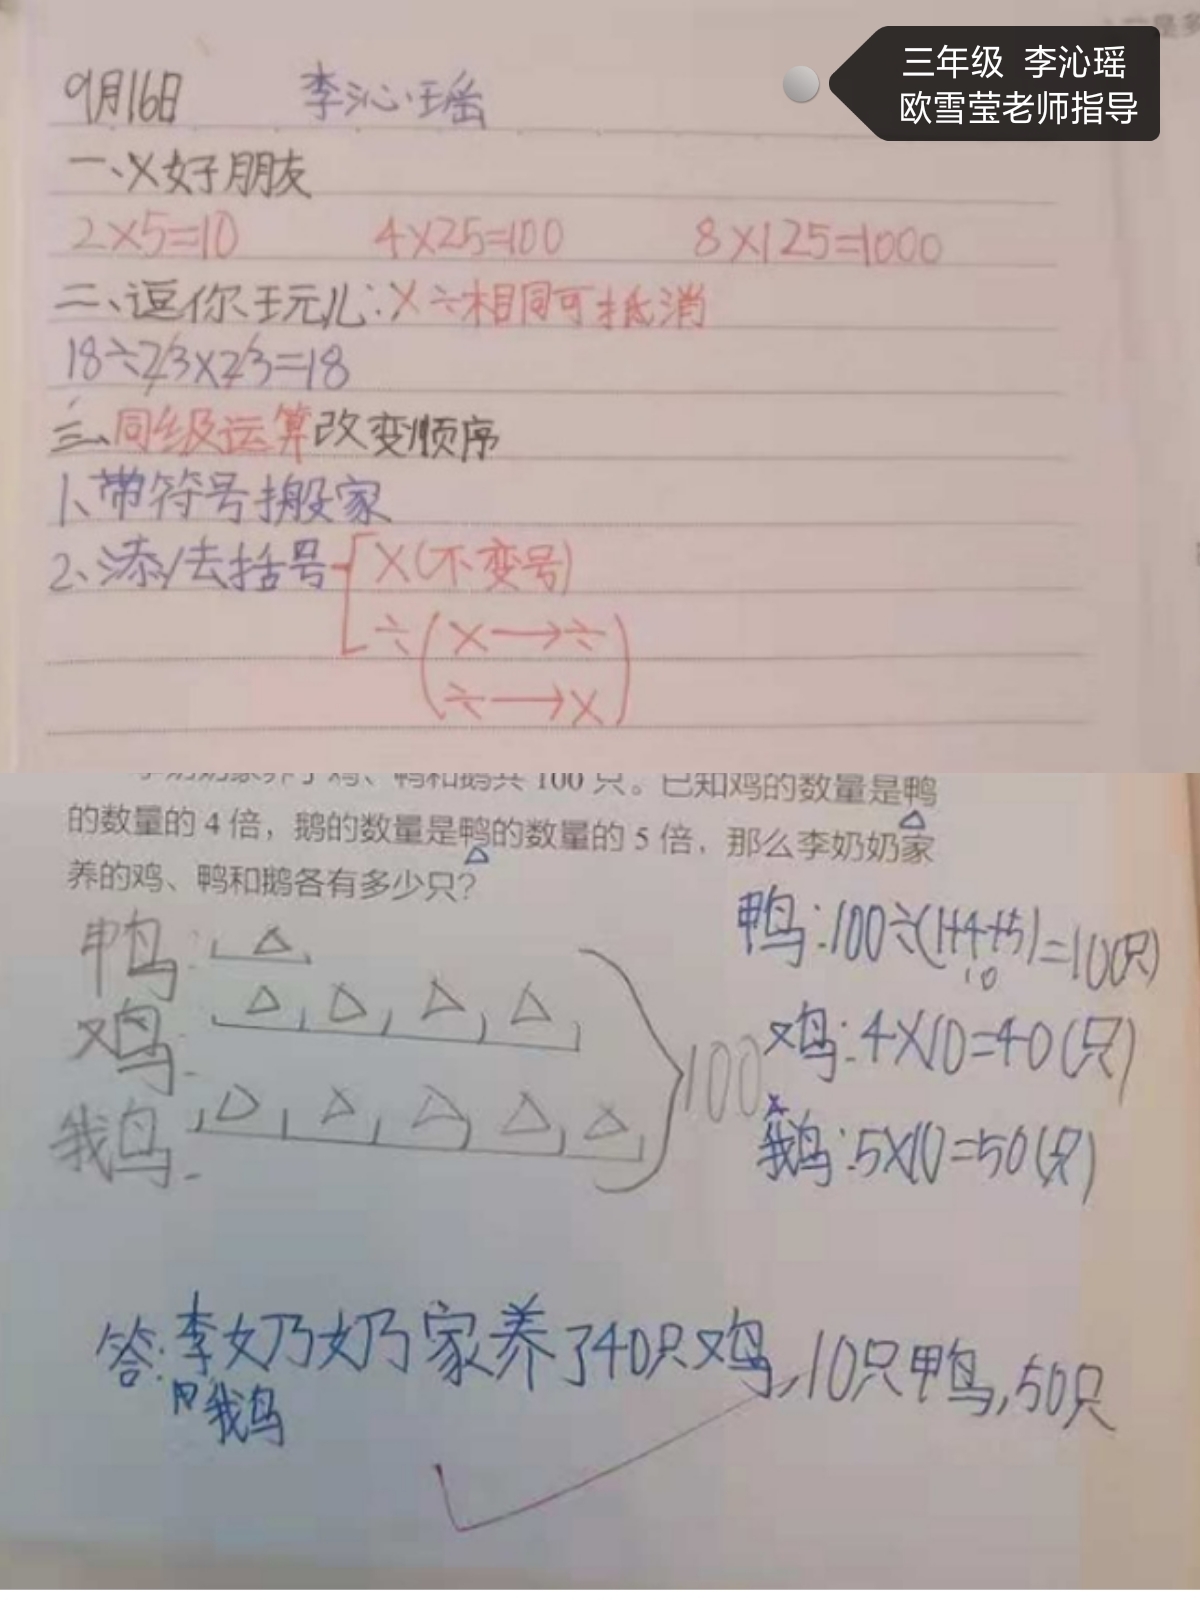 三年级 李沁瑶
欧雪莹老师指导
9月16日 李沁瑶
一、×好朋友
2×5=10 4×25=100 8×125=1000
二、逗你玩儿:×÷相同可抵消
18÷23×23=18
三、同级运算改变顺序
1、带符号搬家
2、添/去括号 ×(不变号)
÷(×→÷
÷→×)
李奶奶家养了鸡、鸭和鹅共 100 只。已知鸡的数量是鸭
的数量的 4 倍，鹅的数量是鸭的数量的 5 倍，那么李奶奶家
养的鸡、鸭和鹅各有多少只?
鸭:
鸡:
鹅:
100
鸭:100÷(1+4+5)=10(只)
10
鸡:4×10=40(只)
鹅:5×10=50(只)
答:李奶奶家养了40只鸡,10只鸭,50只
鹅